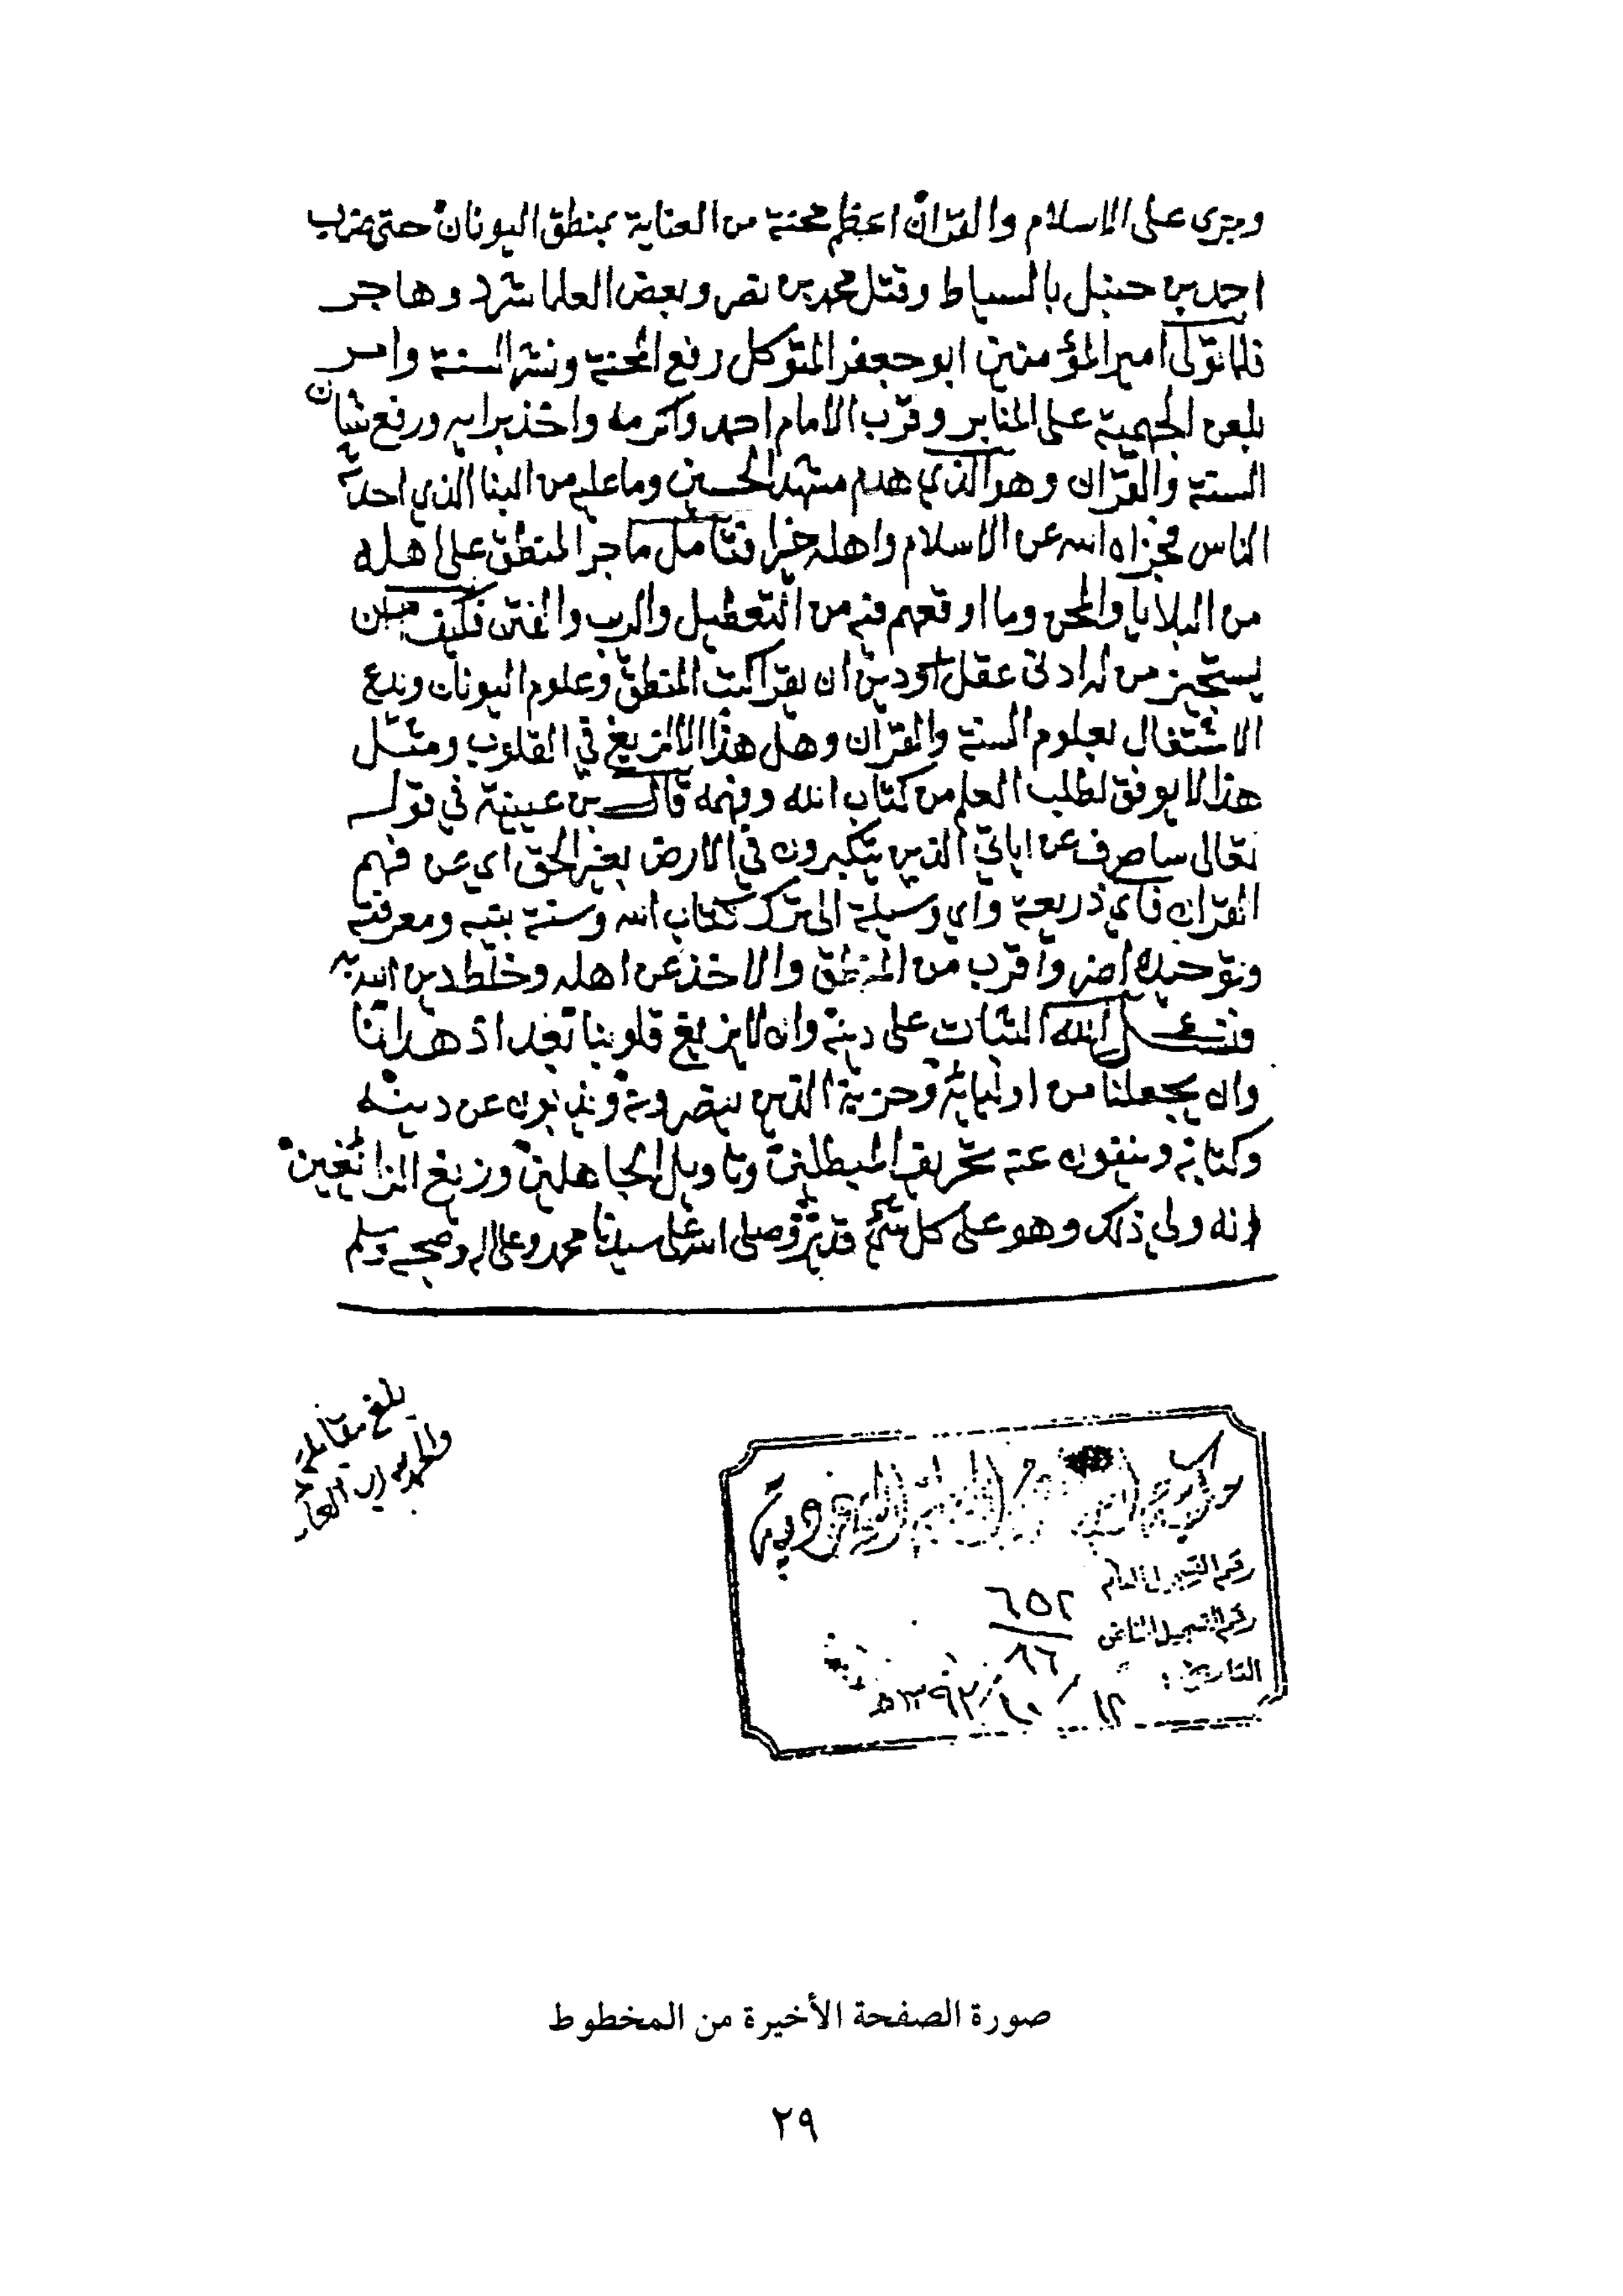 وجرى على الاسلام والقران اعظم محنة من العناية بمنطق اليونان حتى ضرب
احمد بن حنبل بالسياط وقتل محمد بن نصر وبعض العلما شرد وهاجر
فلما تولى امير المؤمنين ابو جعفر المتوكل رفع المحنة ونشر السنة وامر
بلعن الجهمية على المنابر وقرب الامام احمد واكرمه واخذ برايه ورفع شان
السنة والقران وهو الذي هدم مشهد الحسين وما عليه من البنا الذي احدثه
الناس فجزاه الله عن الاسلام واهله خيرا فتامل ما جر المنطق على اهله
من البلايا والمحن وما اوقعهم فيه من التعطيل والريب والفتن فكيف
يستجيز من له ادنى عقل او دين ان يقرا كتب المنطق وعلوم اليونان ويدع
الاشتغال بعلوم السنة والقران وهل هذا الا لزيغ في القلوب ومثل
هذا لا يوفق لطلب العلم من كتاب الله وفهمه قال بن عيينة في قوله
تعالى ساصرف عن اياتي الذين يتكبرون في الارض بغير الحق اي عن فهم
القران فاي ذريعة واي وسيلة الى ترك كتاب الله وسنة نبيه ومعرفته
وتوحيده اضر واقرب من المنطق والاخذ عن اهله وخلط دين الله به
فنسئل الله الثبات على دينه وان لا يزيغ قلوبنا بعد اذ هدانا
وان يجعلنا من اوليائه وحزبه الذين ينصرونه ويذبون عن دينه
وكتابه وينفون عنه تحريف المبطلين وتاويل الجاهلين وزيغ الزائغين
انه ولي ذلك وهو على كل شيء قدير وصلى الله على سيدنا محمد وعلى اله وصحبه وسلم
بلغ مقابلة
والحمد لله رب العا
رقم التسجيل العام
٦٥٢
رقم التسجيل الخاص
٨٦
التاريخ: ١٢ / ١٠ / ١٣٩٢هـ
صورة الصفحة الأخيرة من المخطوط
٢٩